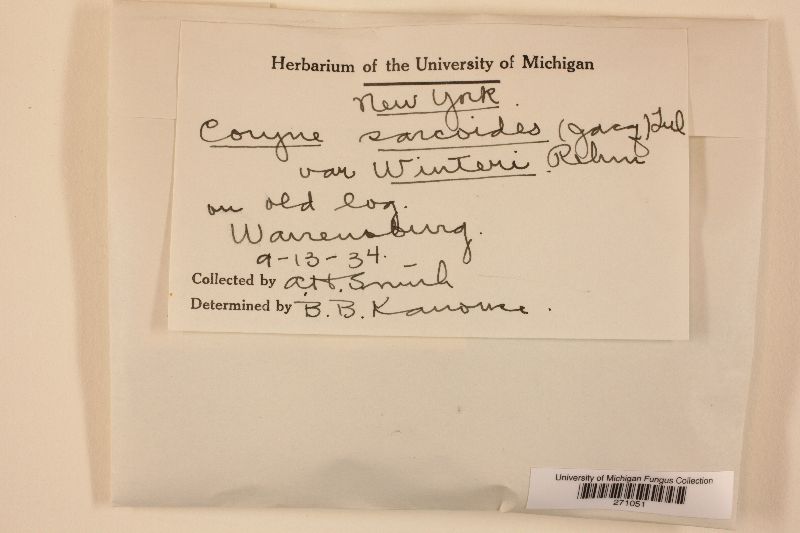 Herbarium of the University of Michigan
New York.
Coryne sarcoides (Jacq) Tul
var Winteri Rehm
on old log.
Warrensburg.
9-13-34.
Collected by A.H. Smith
Determined by B.B. Kanouse.
University of Michigan Fungus Collection
271051